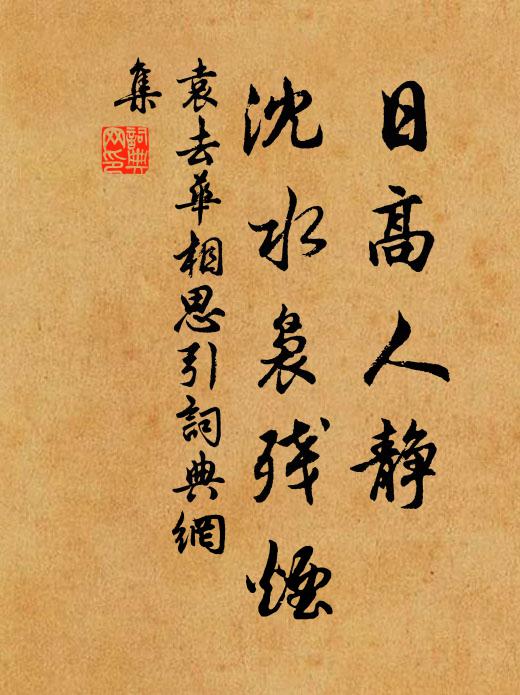 日高人静
沈水裊残煙
袁去華相思引詞典網
集
詞典
网印